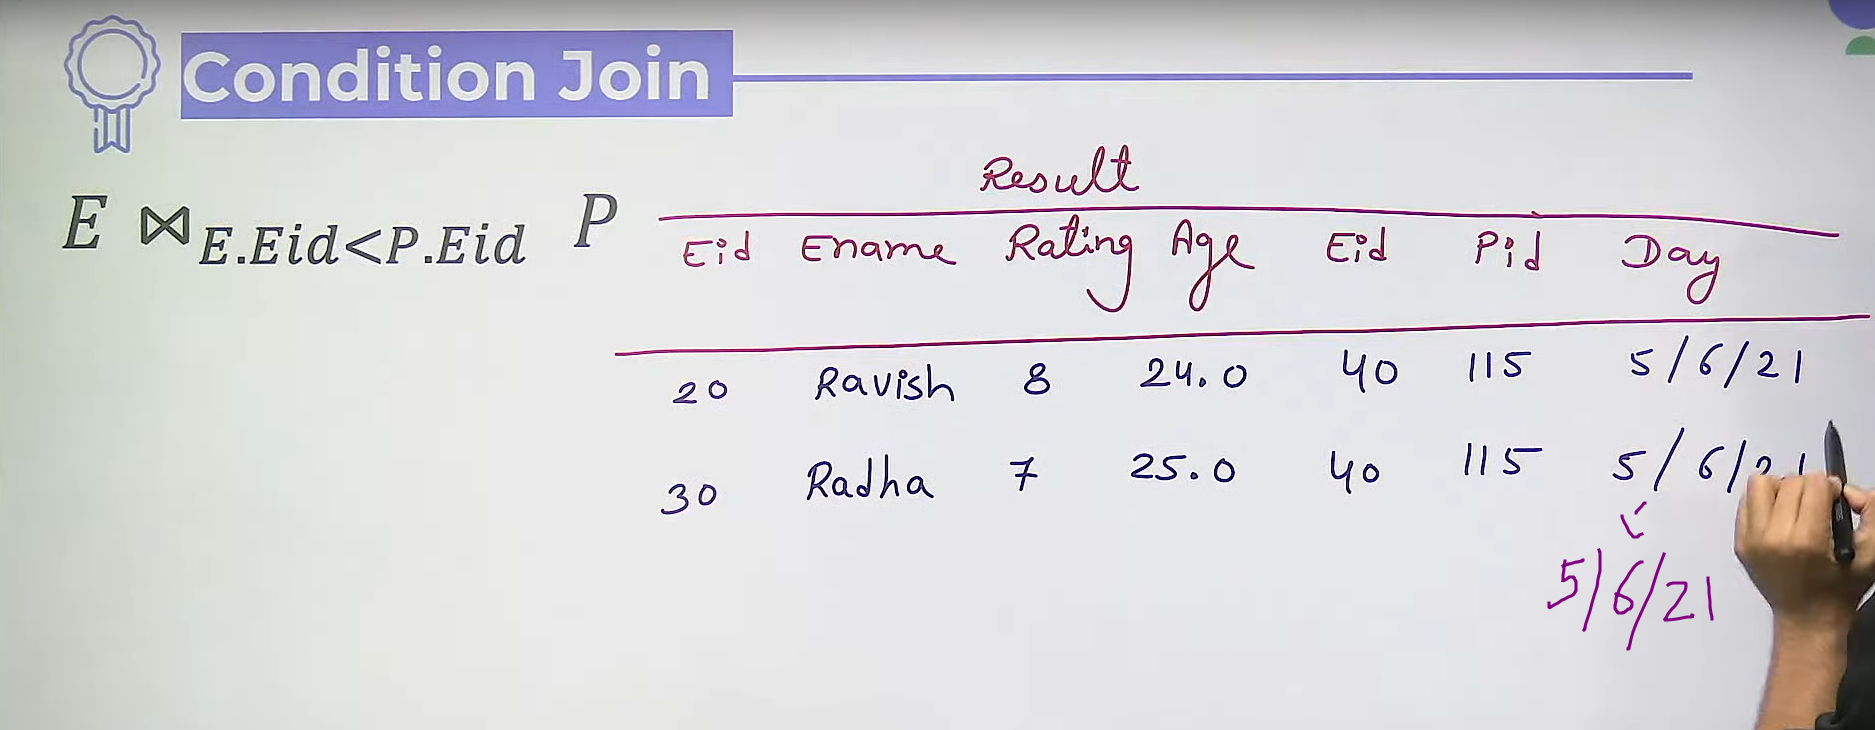 Condition Join
Result
E ⋈ E.Eid<P.Eid P
Eid Ename Rating Age Eid Pid Day
20 Ravish 8 24.0 40 115 5/6/21
30 Radha 7 25.0 40 115 5/6/21
5/6/21